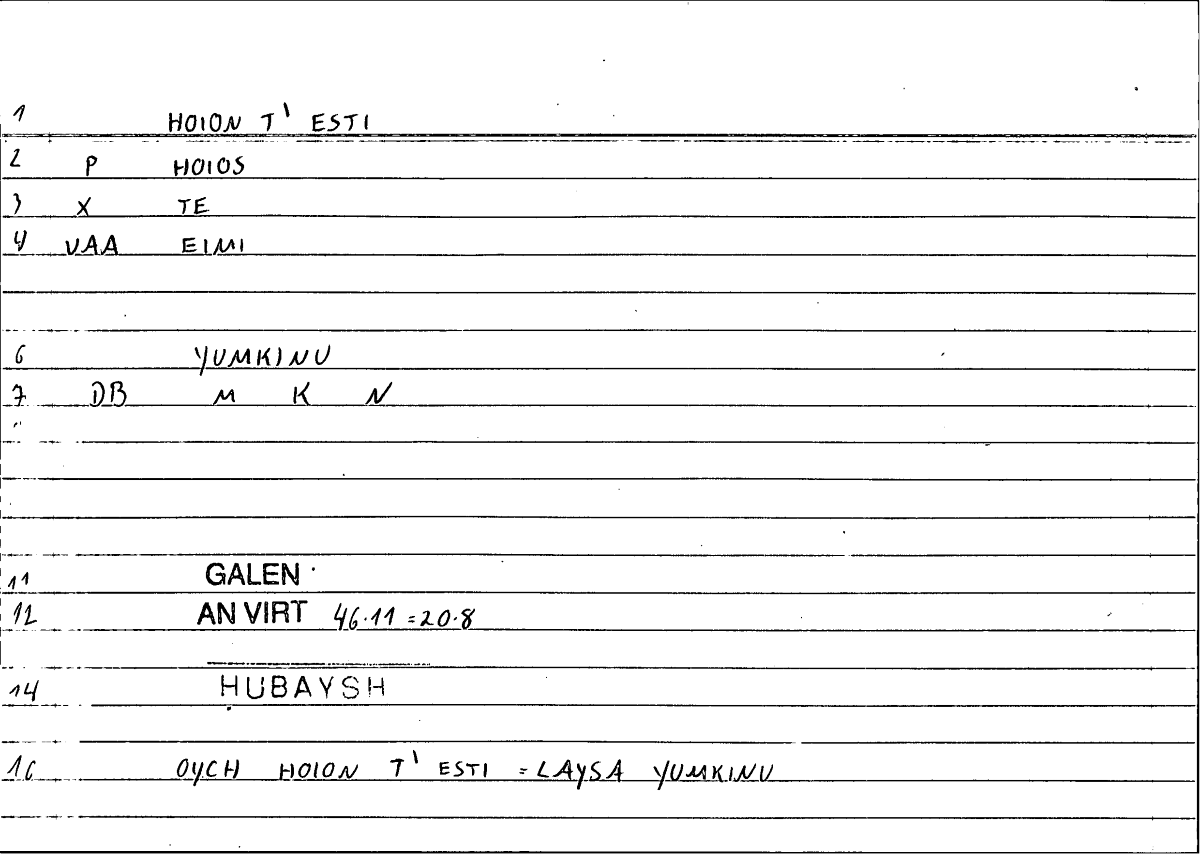 1 HOION T' ESTI
2 P HOIOS
3 X TE
4 VAA EIMI
6 YUMKINU
7 DB M K N
11 GALEN
12 AN VIRT 46.11 = 20.8
14 HUBAYSH
16 OYCH HOION T' ESTI = LAYSA YUMKINU